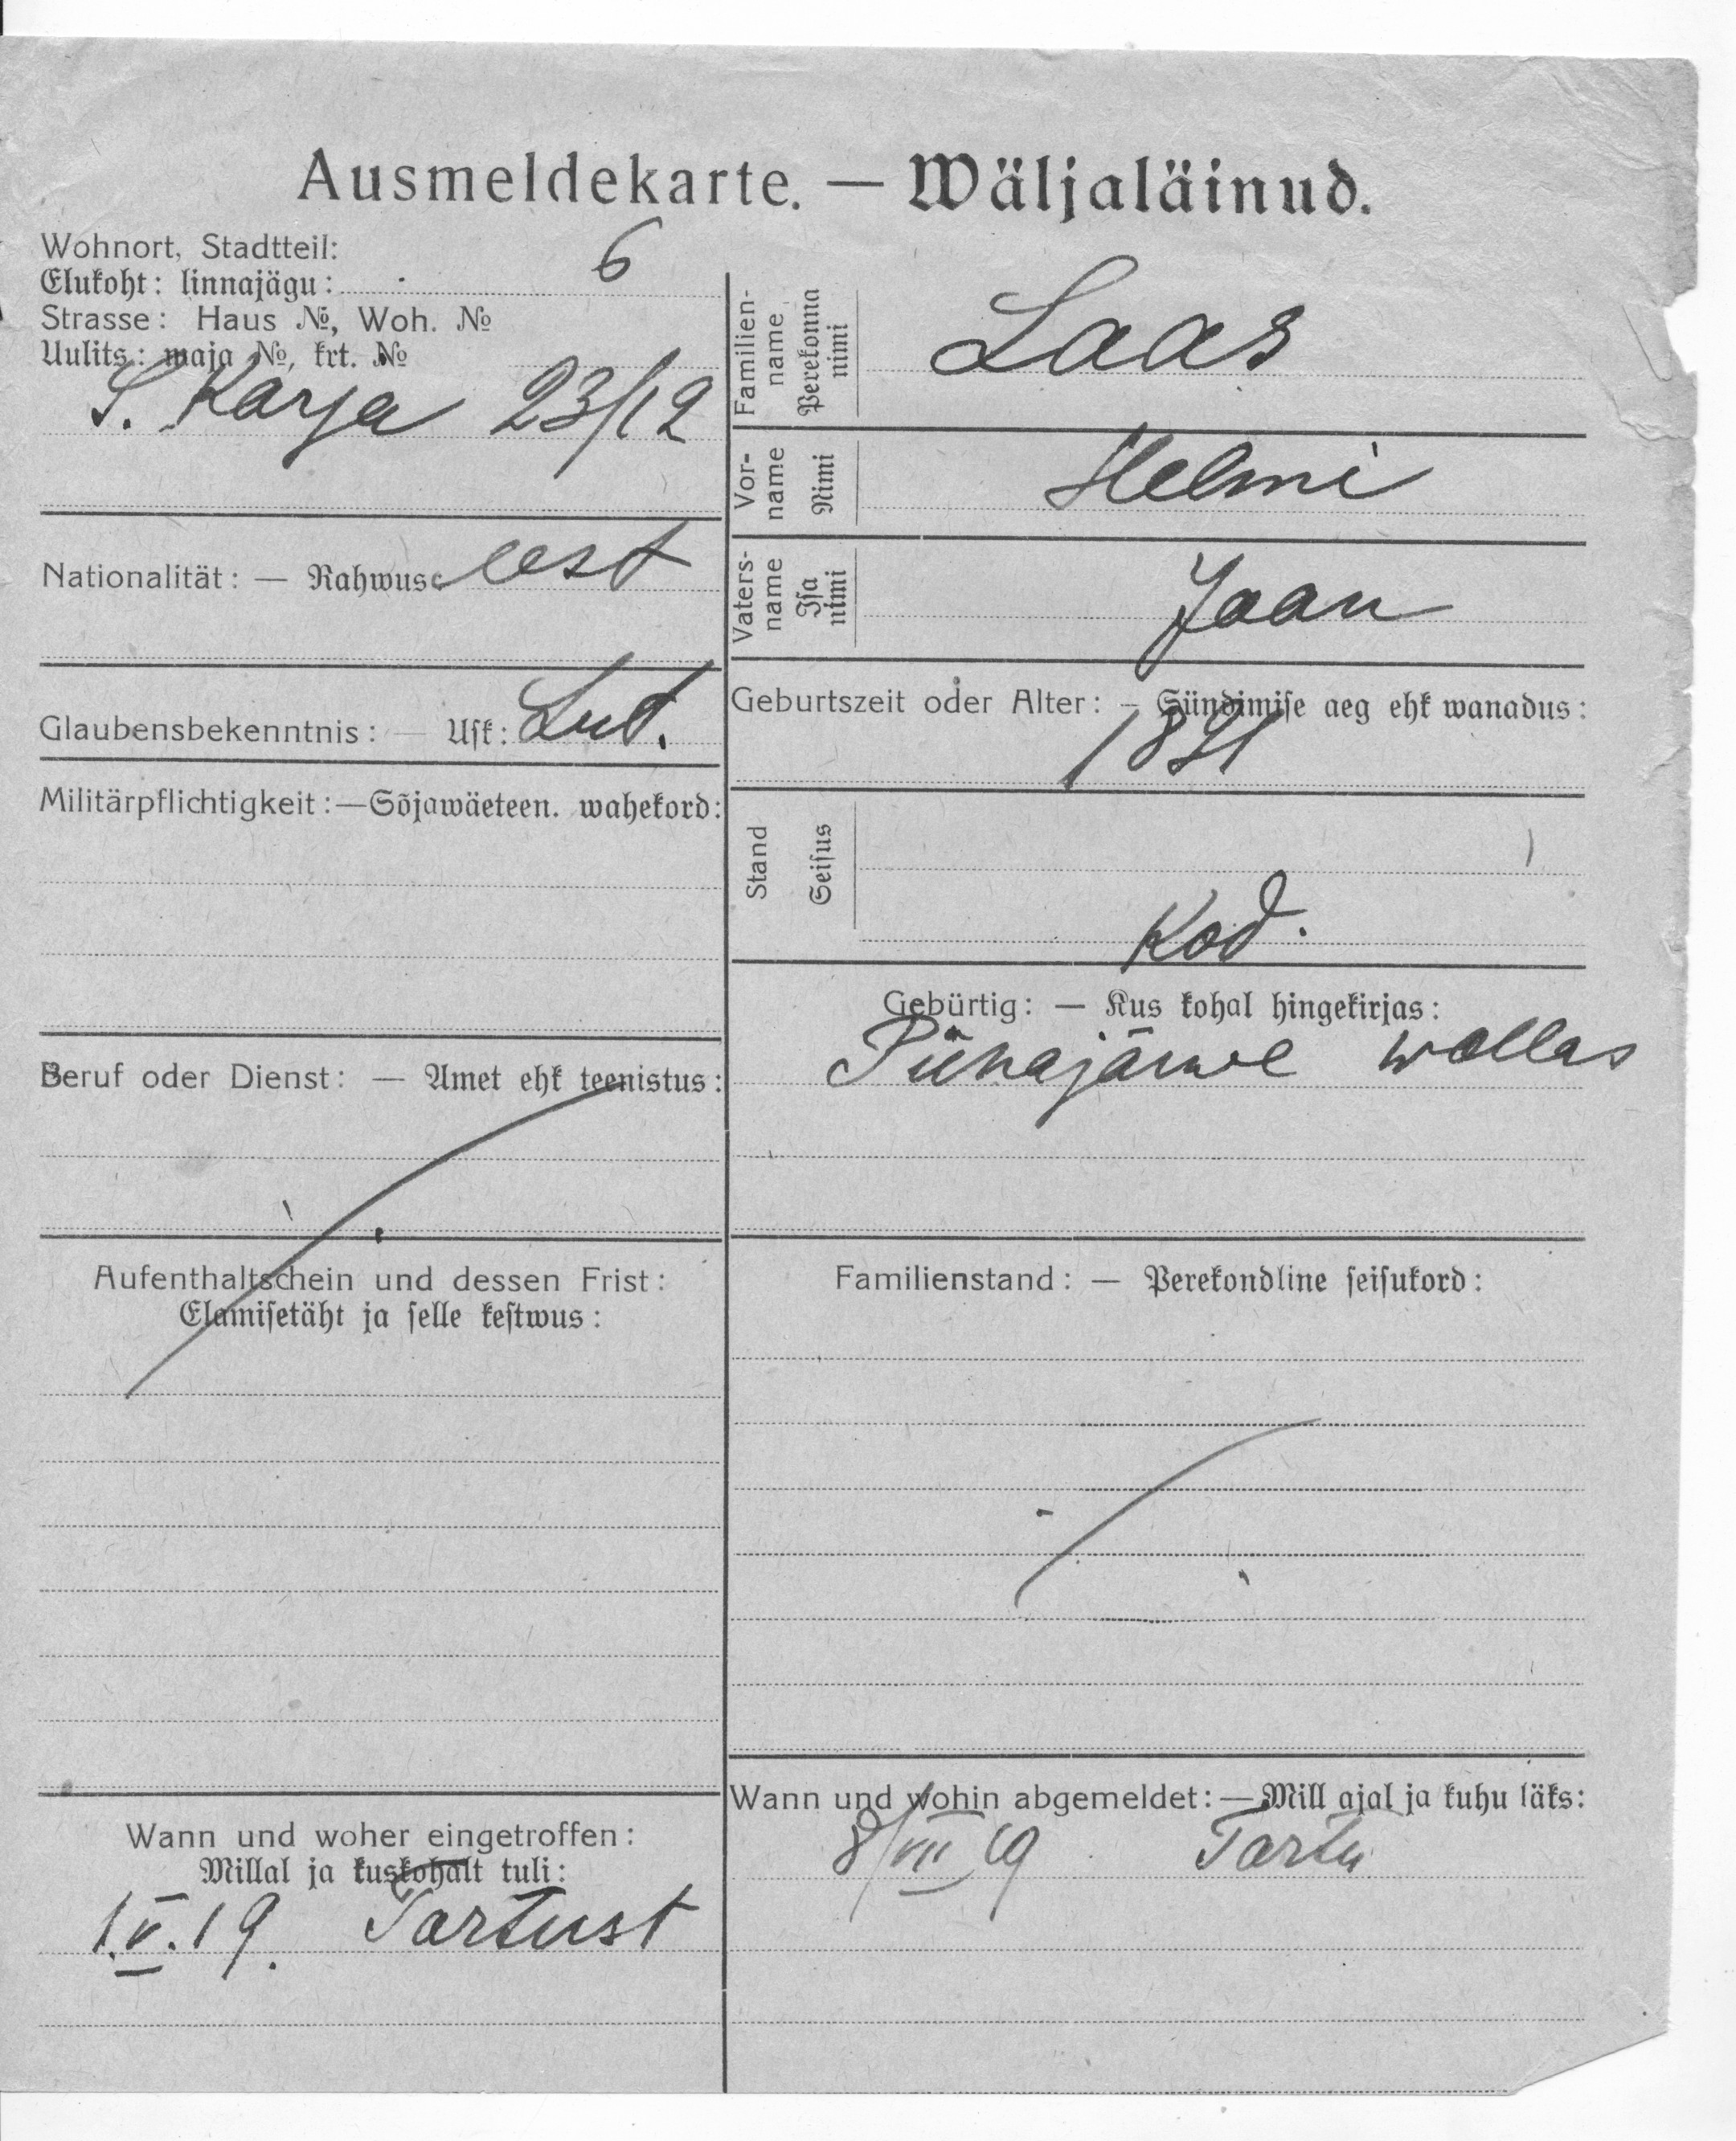 Ausmeldekarte. — Wäljaläinud.
Wohnort, Stadtteil:
Elukoht: linnajägu: 6
Strasse: Haus №, Woh. №
Uulits: maja №, krt. №
S. Karja 23/12
Nationalität: — Rahwus: eest
Glaubensbekenntnis: — Usk: Lut.
Militärpflichtigkeit: — Sõjawäeteen. wahekord:
Beruf oder Dienst: — Amet ehk teenistus:
Aufenthaltschein und dessen Frist:
Elamisetäht ja selle kestwus:
Wann und woher eingetroffen:
Millal ja kuskohalt tuli:
1.V.19. Tartust
Familien-
name
Perekonna
nimi
Laas
Vor-
name
Nimi
Helmi
Vaters-
name
Isa
nimi
Jaan
Geburtszeit oder Alter: — Sündimise aeg ehk wanadus:
Stand
Seisus
Kod.
Gebürtig: — Kus kohal hingekirjas:
Pühajärwe wallas
Familienstand: — Perekondline seisukord:
Wann und wohin abgemeldet: — Mill ajal ja kuhu läks:
8/VII 19 Tartu